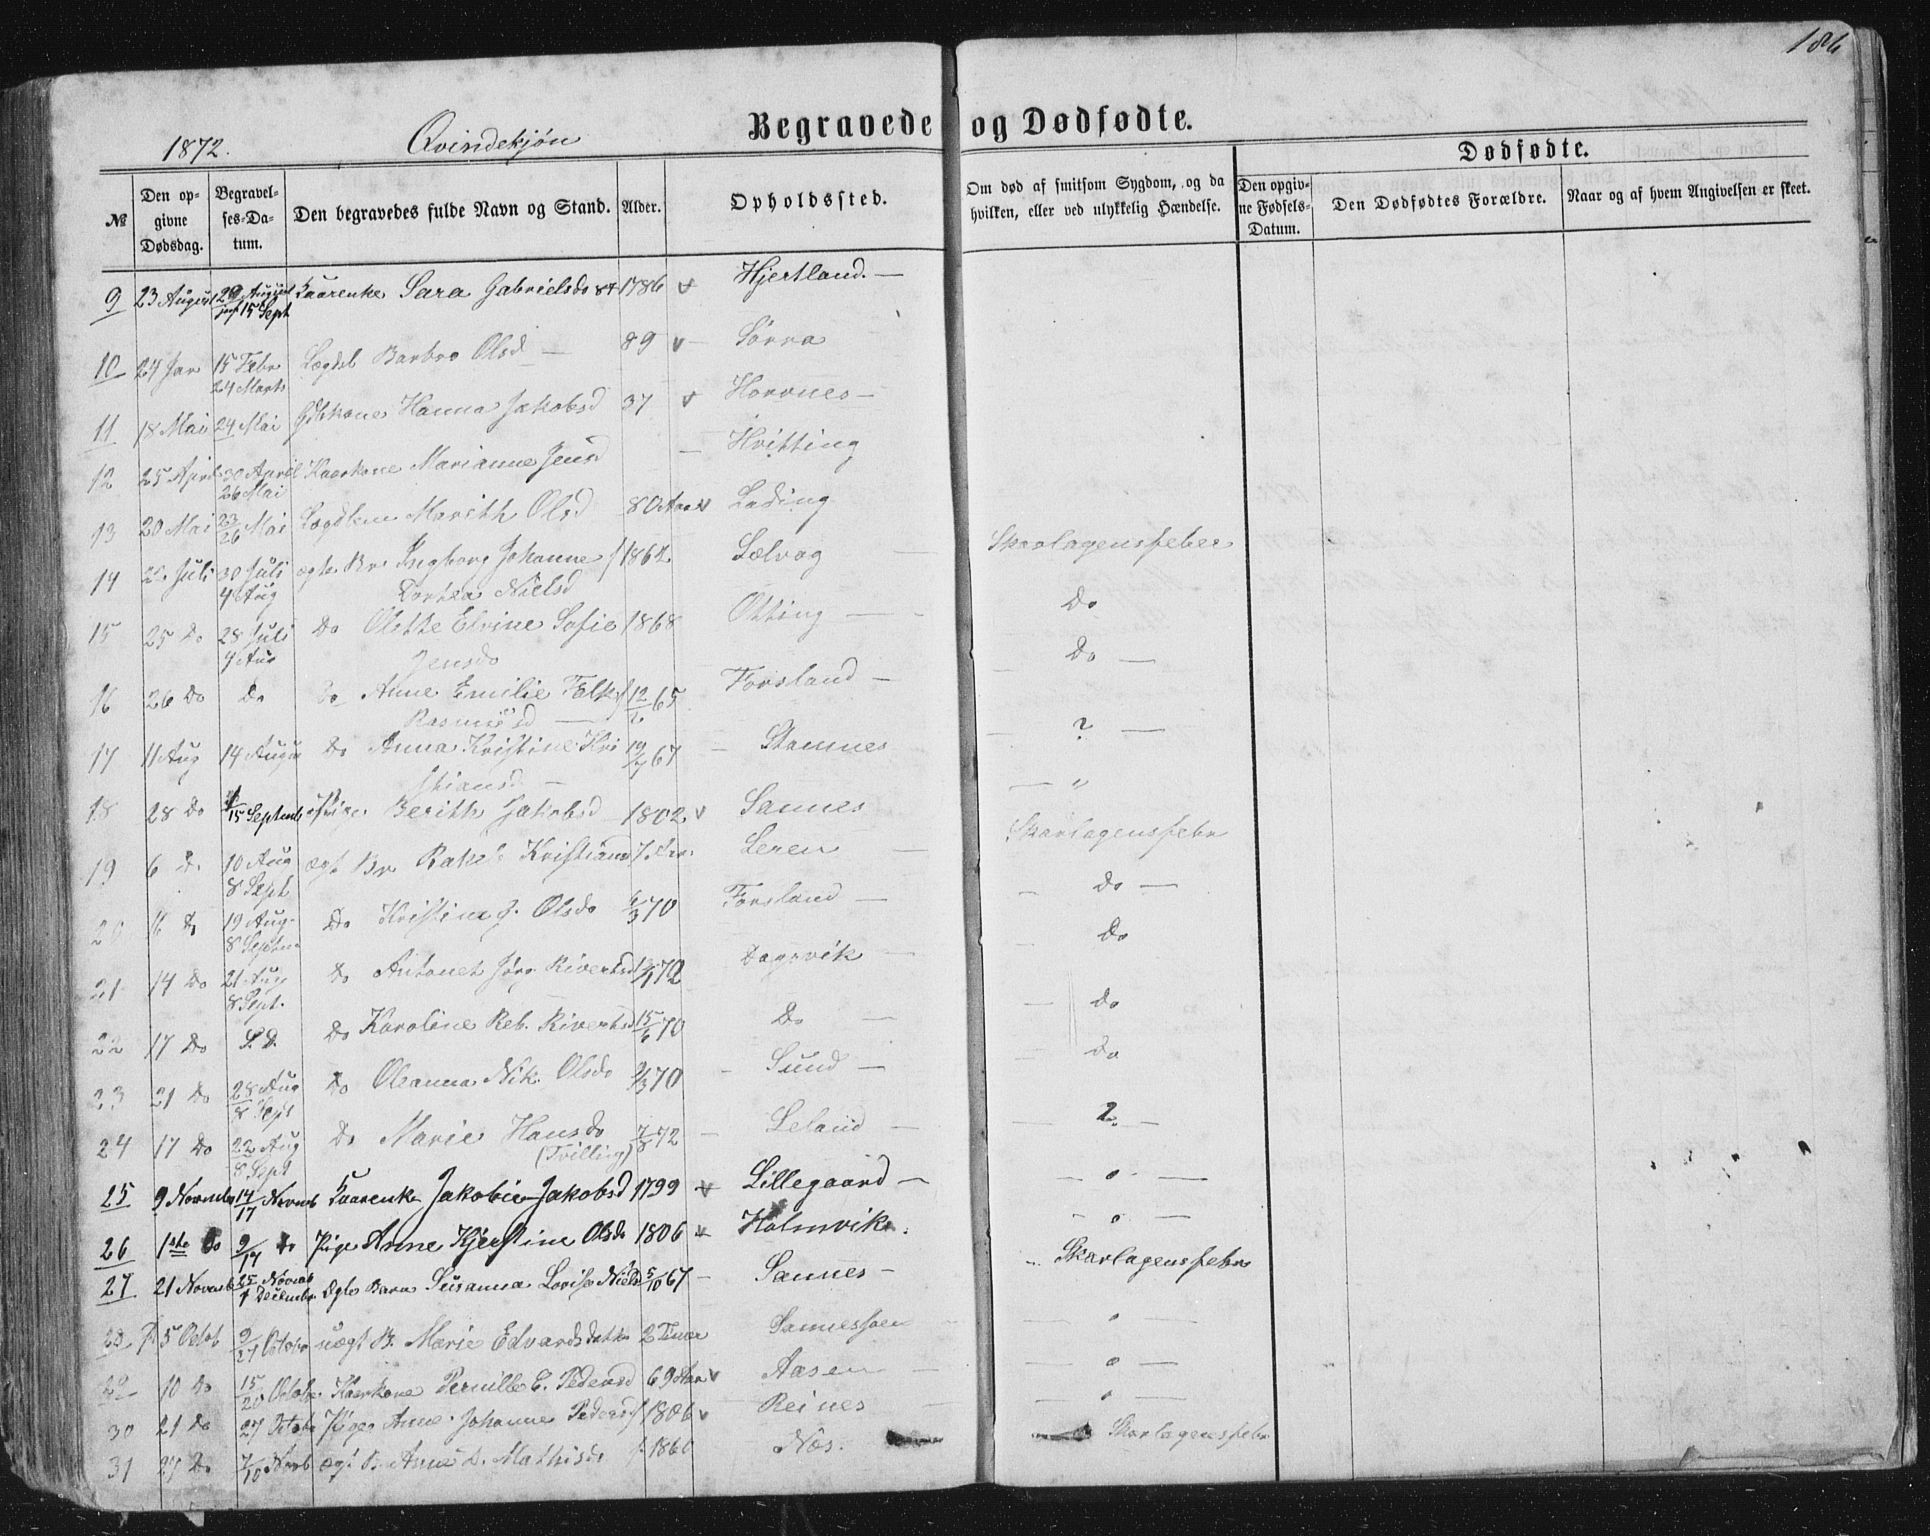 186
1872. Qvindekjøn Begravede og Dødfødte.
Dødfødte.
№ Den opgivne Dødsdag. Begravelses-Datum. Den begravedes fulde Navn og Stand. Alder. Opholdssted. Om død af smitsom Sygdom, og da hvilken, eller ved ulykkelig Hændelse. Den opgivne Fødsels-Datum. Den Dødfødtes Forældre. Naar og af hvem Angivelsen er skeet.
9 23 August 29 August 15 Sept Kaarenke Sara Gabrielsd 1786 Hjertland. —
10 24 Jan 15 Febr 24 Marts Lægdsl Barbro Olsd — 89 Sørra
11 18 Mai 24 Mai Hanna Jakobsd 37 Hornnes —
12 25 April 30 April 26 Mai Kaarkone Marianne Jensd — Hvitting
13 20 Mai 23/26 Mai Lægdlem Mareth Olsd 80 Aar Lading
14 Juli 30 Juli 4 Aug ægte Br Ingborg Johanne 1862 Sælvog — Skarlagensfeber
Dorthea Nielsd
15 25 Do 28 Juli 4 Aug Do Olette Elvine Sofie 1868 Otting — Do
Jensdo
16 26 Do Do Do Anne Emilie Falk 12/6 65 Forsland — Do —
Rasmusd —
17 11 Aug 14 August Do Anna Kristine Kri 19/7 67 — Stamnes — ? —
stiansd —
18 28 Do 1/15 Septemb Berith Jakobsd 1802 Sannes — "
19 6 Do 10 Aug 8 Sept ægt Br Rakel Kristians 7 Aar Leren — Skarlagensfebr
20 16 Do 19 Aug. 8 Septem Do Kristine J. Olsdo 6/3 70 Forsland — Do —
21 14 Do 21 Aug 8 Sept. Do Antonet Jørg Rivertsd 72 Dagsvik — Do
22 17 Do D. D. Do Karoline Reb. Rivertsd 15/6 70 Do — Do
23 21 Do 28 Aug 8 Sept Do Oleanna Nik. Olsdo 9/3 70 — Sund — Do
24 17 Do 22 Aug 8 Sept Do Marie Hansdo 7/8 72 — Leland — ? —
(Tvilling)
25 9 Novemb 14/17 Novemb Kaarenke Jakobie Jakobsd 1799 Lillegaard — " —
26 1ste Do 9/17 Do Pige Anne Kjerstine Olsdo 1806 Holmvik. — " —
27 21 Novemb 25 Novemb 1 Decembr Egte Barn Susanna Lovise Niels 5/10 67 — Sannes — Skarlagensfebr
28 5 Octob 9/27 Octobr uægt B. Marie Edvardsdatter 2 Timer Sannessøen — " —
29 10 Do 15/20 Octobr Kaarkone Pernille E. Pedersd 69 Aar Aasen — " —
30 21 Do 27 Octobr Pige Anne Johanne Pedersd 1806 Reines — " —
31 27 Do 7/10 Novb ægt B. Anne D. Mathisdo 1860 Næs. Skarlagensfebr